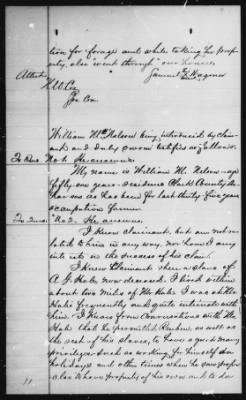 tion for forage and while taking the prop-
erty, also "went through" our houses
Samuel Wagoner
Attest
William M. Nelson being introduced by claim-
ant and duly sworn testifies as follows.
To Ques. No 1. He answers:
My name is William M. Nelson – age
fifty one years – residence Clark County Ar-
kansas as has been for last thirty five years
occupation farmer
To Ques. "No 2. He answers.
I know claimant, but am not re-
lated to him in any way, nor have I any
interest in the success of his claim.
I knew Claimant when a slave of
A. G. Hale now deceased. I lived within
about two miles of Mr Hale. I was at Mr
Hale's frequently and quite intimate with
him. I know from conversations with Mr
Hale that he permitted Reuben as well as
the rest of his slaves, to have a good many
privileges such as working for himself on
holidays and other times when he was
also to have property of his own and to do
11